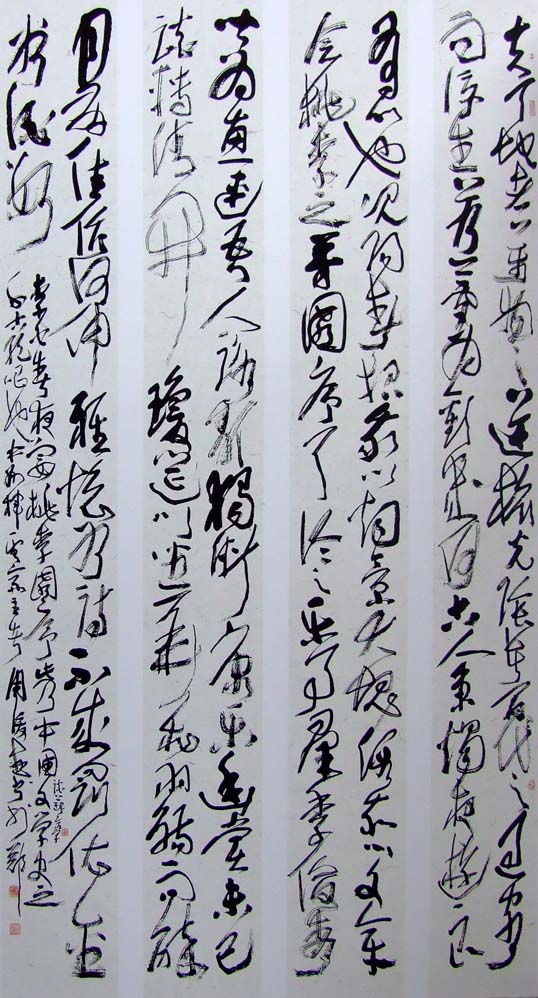 夫天地者萬物之逆旅光陰者百代之過客
而浮生若夢為歡幾何古人秉燭夜遊良
有以也況陽春招我以烟景大塊假我以文章
會桃李之芳園序天倫之樂事群季俊秀
皆為惠連吾人詠歌獨慚康樂幽賞未已
談轉清開瓊筵以坐花飛羽觴而醉
月不有佳作何伸雅懷如詩不成罰依金
谷酒數
李白春夜宴桃李園序此乃本國文學史之
周俊杰書於鄭